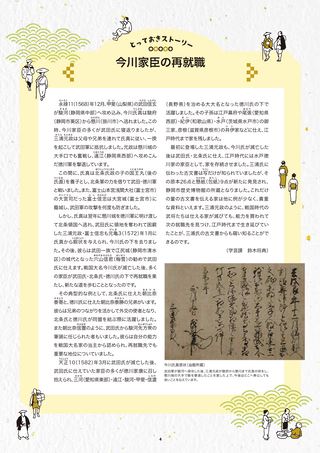 とっておきストーリー
今川家臣の再就職
永禄11(1568)年12月、甲斐(山梨県)の武田信玄
が駿河(静岡県中部)へ攻め込み、今川氏真は駿府
(静岡市葵区)から懸川(掛川市)へ逃れました。この
時、今川家臣の多くが武田氏に寝返りましたが、
三浦元政は父母や兄弟を連れて氏真に従い、一夜
を起こして武田軍に抵抗しました。元政は懸川城の
大手口でも奮戦し、遠江(静岡県西部)へ攻めこん
だ徳川軍を撃退しています。
この間に、氏真は北条氏政の子の国王丸(後の
氏直)を養子とし、北条家の力を借りて武田・徳川軍
と戦いました。また、富士山本宮浅間大社(富士宮市)
の大宮司だった富士信忠は大宮城(富士宮市)に
籠城し、武田軍の攻撃を何度も防ぎました。
しかし、氏真は翌年に懸川城を徳川軍に明け渡し
て北条領国へ逃れ、武田氏に領地を奪われて困窮
した三浦元政・富士信忠も元亀3(1572)年1月に
氏真から暇を与えられ、今川氏の下を去りまし
た。その後、彼らは武田一族で江尻城(静岡市清水
区)の城代となった穴山信君(梅雪)の勧めで武田
氏に仕えます。戦国大名今川氏が滅亡した後、多く
の家臣が武田氏・北条氏・徳川氏の下で再就職を果た
し、新たな道を歩むことになったのです。
その典型的な例として、北条氏に仕えた朝比奈
泰寄と、徳川氏に仕えた朝比奈泰勝の兄弟がいます。
彼らは兄弟のつながりを活かして外交の使者となり、
北条氏と徳川氏が同盟を結ぶ際に活躍しました。
また朝比奈信置のように、武田氏から駿河先方衆の
筆頭に任じられた者もいました。彼らは自分の能力
を戦国大名家の当主から認められ、再就職先でも
重要な地位についていました。
天正10(1582)年3月に武田氏が滅亡した後、
武田氏に仕えていた家臣の多くが徳川家康に召し
抱えられ、三河(愛知県東部)・遠江・駿河・甲斐・信濃
(長野県)を治める大大名となった徳川氏の下で活
躍しました。その子孫は江戸幕府や尾張(愛知県
西部)・紀伊(和歌山県)・水戸(茨城県水戸市)の御
三家、彦根(滋賀県彦根市)の井伊家などに仕え、江
戸時代まで家を残しました。
最初に登場した三浦元政も、今川氏が滅亡した
後は武田氏・北条氏に仕え、江戸時代には水戸徳
川家の家臣となって活躍しました。三浦元政に
伝わった古文書は写だけが知られていましたが、そ
の原本26点と懸紙(包紙)9点が新たに発見され、
静岡市歴史博物館の所蔵となりました。これだけ
の量の古文書を伝える家は他に例が少なく、貴重
な資料といえます。三浦元政のように、戦国時代の
武将たちは仕える家が滅びても、能力を買われて
次の就職先を見つけ、江戸時代まで生き延びていっ
たことが、三浦氏の古文書からも窺い知ることがで
きるのです。
(学芸課 鈴木将典)
今川氏真感状(当館所蔵)
4